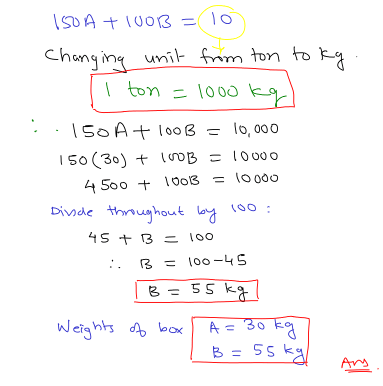 150A + 100B = 10
Changing unit from ton to kg.
1 ton = 1000 kg
∴ 150A + 100B = 10,000
150(30) + 100B = 10000
4500 + 100B = 10000
Divide throughout by 100 :
45 + B = 100
∴ B = 100-45
B = 55 kg
Weights of box A = 30 kg
B = 55 kg
Ans.